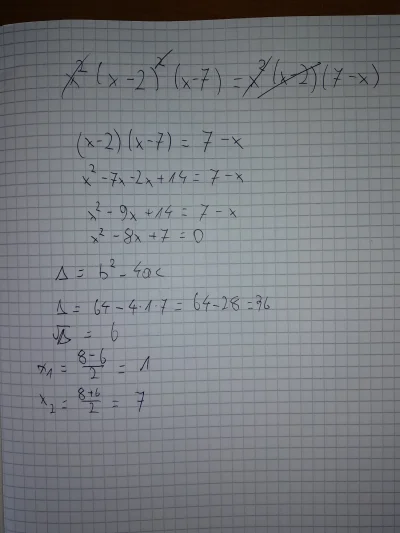 x² (x-2)² (x-7) = x² (x-2) (7-x)
(x-2) (x-7) = 7-x
x² -7x -2x +14 = 7-x
x² -9x +14 = 7-x
x² -8x +7 = 0
Δ = b² -4ac
Δ = 64 -4·1·7 = 64-28 = 36
√Δ = 6
x₁ = (8-6)/2 = 1
x₂ = (8+6)/2 = 7